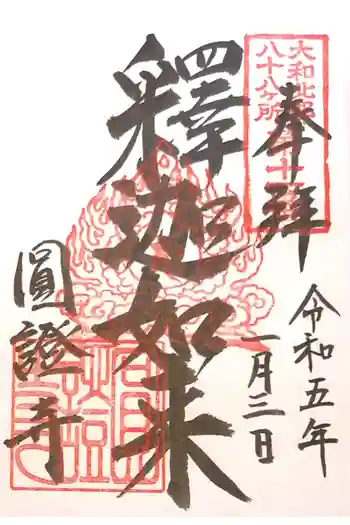 奉拝
大和北部
八十八ヶ所
令和五年
一月三日
釋迦如来
圓證寺
圓證寺